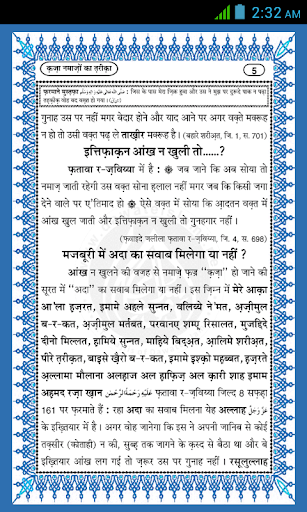 2:32 AM
क़ज़ा नमाज़ों का तरीक़ा
5
फ़रमाने मुस्तफ़ा : जिस के पास मेरा ज़िक्र हुवा और उस ने मुझ पर दुरूदे पाक न पढ़ा
तहक़ीक़ वोह बद बख़्त हो गया ।
गुनाह उस पर नहीं मगर बेदार होने और याद आने पर अगर वक़्ते मकरूह
न हो तो उसी वक़्त पढ़ ले ताख़ीर मकरूह है। (बहारे शरीअ़त, जि. 1, स. 701)
इत्तिफ़ाक़न आंख न खुली तो......?
फ़तावा र-ज़विय्या में है : ❁ जब जाने कि अब सोया तो
नमाज़ जाती रहेगी उस वक़्त सोना ह़लाल नहीं मगर जब कि किसी जगा
देने वाले पर ए'तिमाद हो ❁ ऐसे वक़्त में सोया कि आ़दतन वक़्त में
आंख खुल जाती और इत्तिफ़ाक़न न खुली तो गुनहगार नहीं।
(फ़वाइदे जलीला फ़तावा र-ज़विय्या, जि. 4, स. 698)
मजबूरी में अदा का सवाब मिलेगा या नहीं ?
आंख न खुलने की वजह से नमाज़े फ़ज्र "क़ज़ा" हो जाने की
सूरत में "अदा" का सवाब मिलेगा या नहीं। इस ज़िम्न में मेरे आक़ा
आ'ला ह़ज़रत, इमामे अहले सुन्नत, वलिय्ये ने'मत, अ़ज़ीमुल
ब-र-कत, अ़ज़ीमुल मर्तबत, परवानए शम्ए रिसालत, मुजद्दिदे
दीनो मिल्लत, ह़ामिये सुन्नत, माह़िये बिद्अ़त, आ़लिमे शरीअ़त,
पीरे त़रीक़त, बाइसे ख़ैरो ब-र-कत, इमामे इश्क़ो मह़ब्बत, ह़ज़रते
अ़ल्लामा मौलाना अलह़ाज अल ह़ाफ़िज़ अल क़ारी शाह इमाम
अह़मद रज़ा ख़ान عَلَيْهِ رَحْمَةُ الرَّحْمٰن फ़तावा र-ज़विय्या जिल्द 8 सफ़ह़ा
161 पर फ़रमाते हैं : रहा अदा का सवाब मिलना येह अल्लाह عَزَّوَجَلَّ
के इख़्तियार में है। अगर वोह जानेगा कि इस ने अपनी जानिब से कोई
तक़्सीर (कोताही) न की, सुब्ह़ तक जागने के क़स्द से बैठा था और बे
इख़्तियार आंख लग गई तो ज़रूर उस पर गुनाह नहीं। रसूलुल्लाह